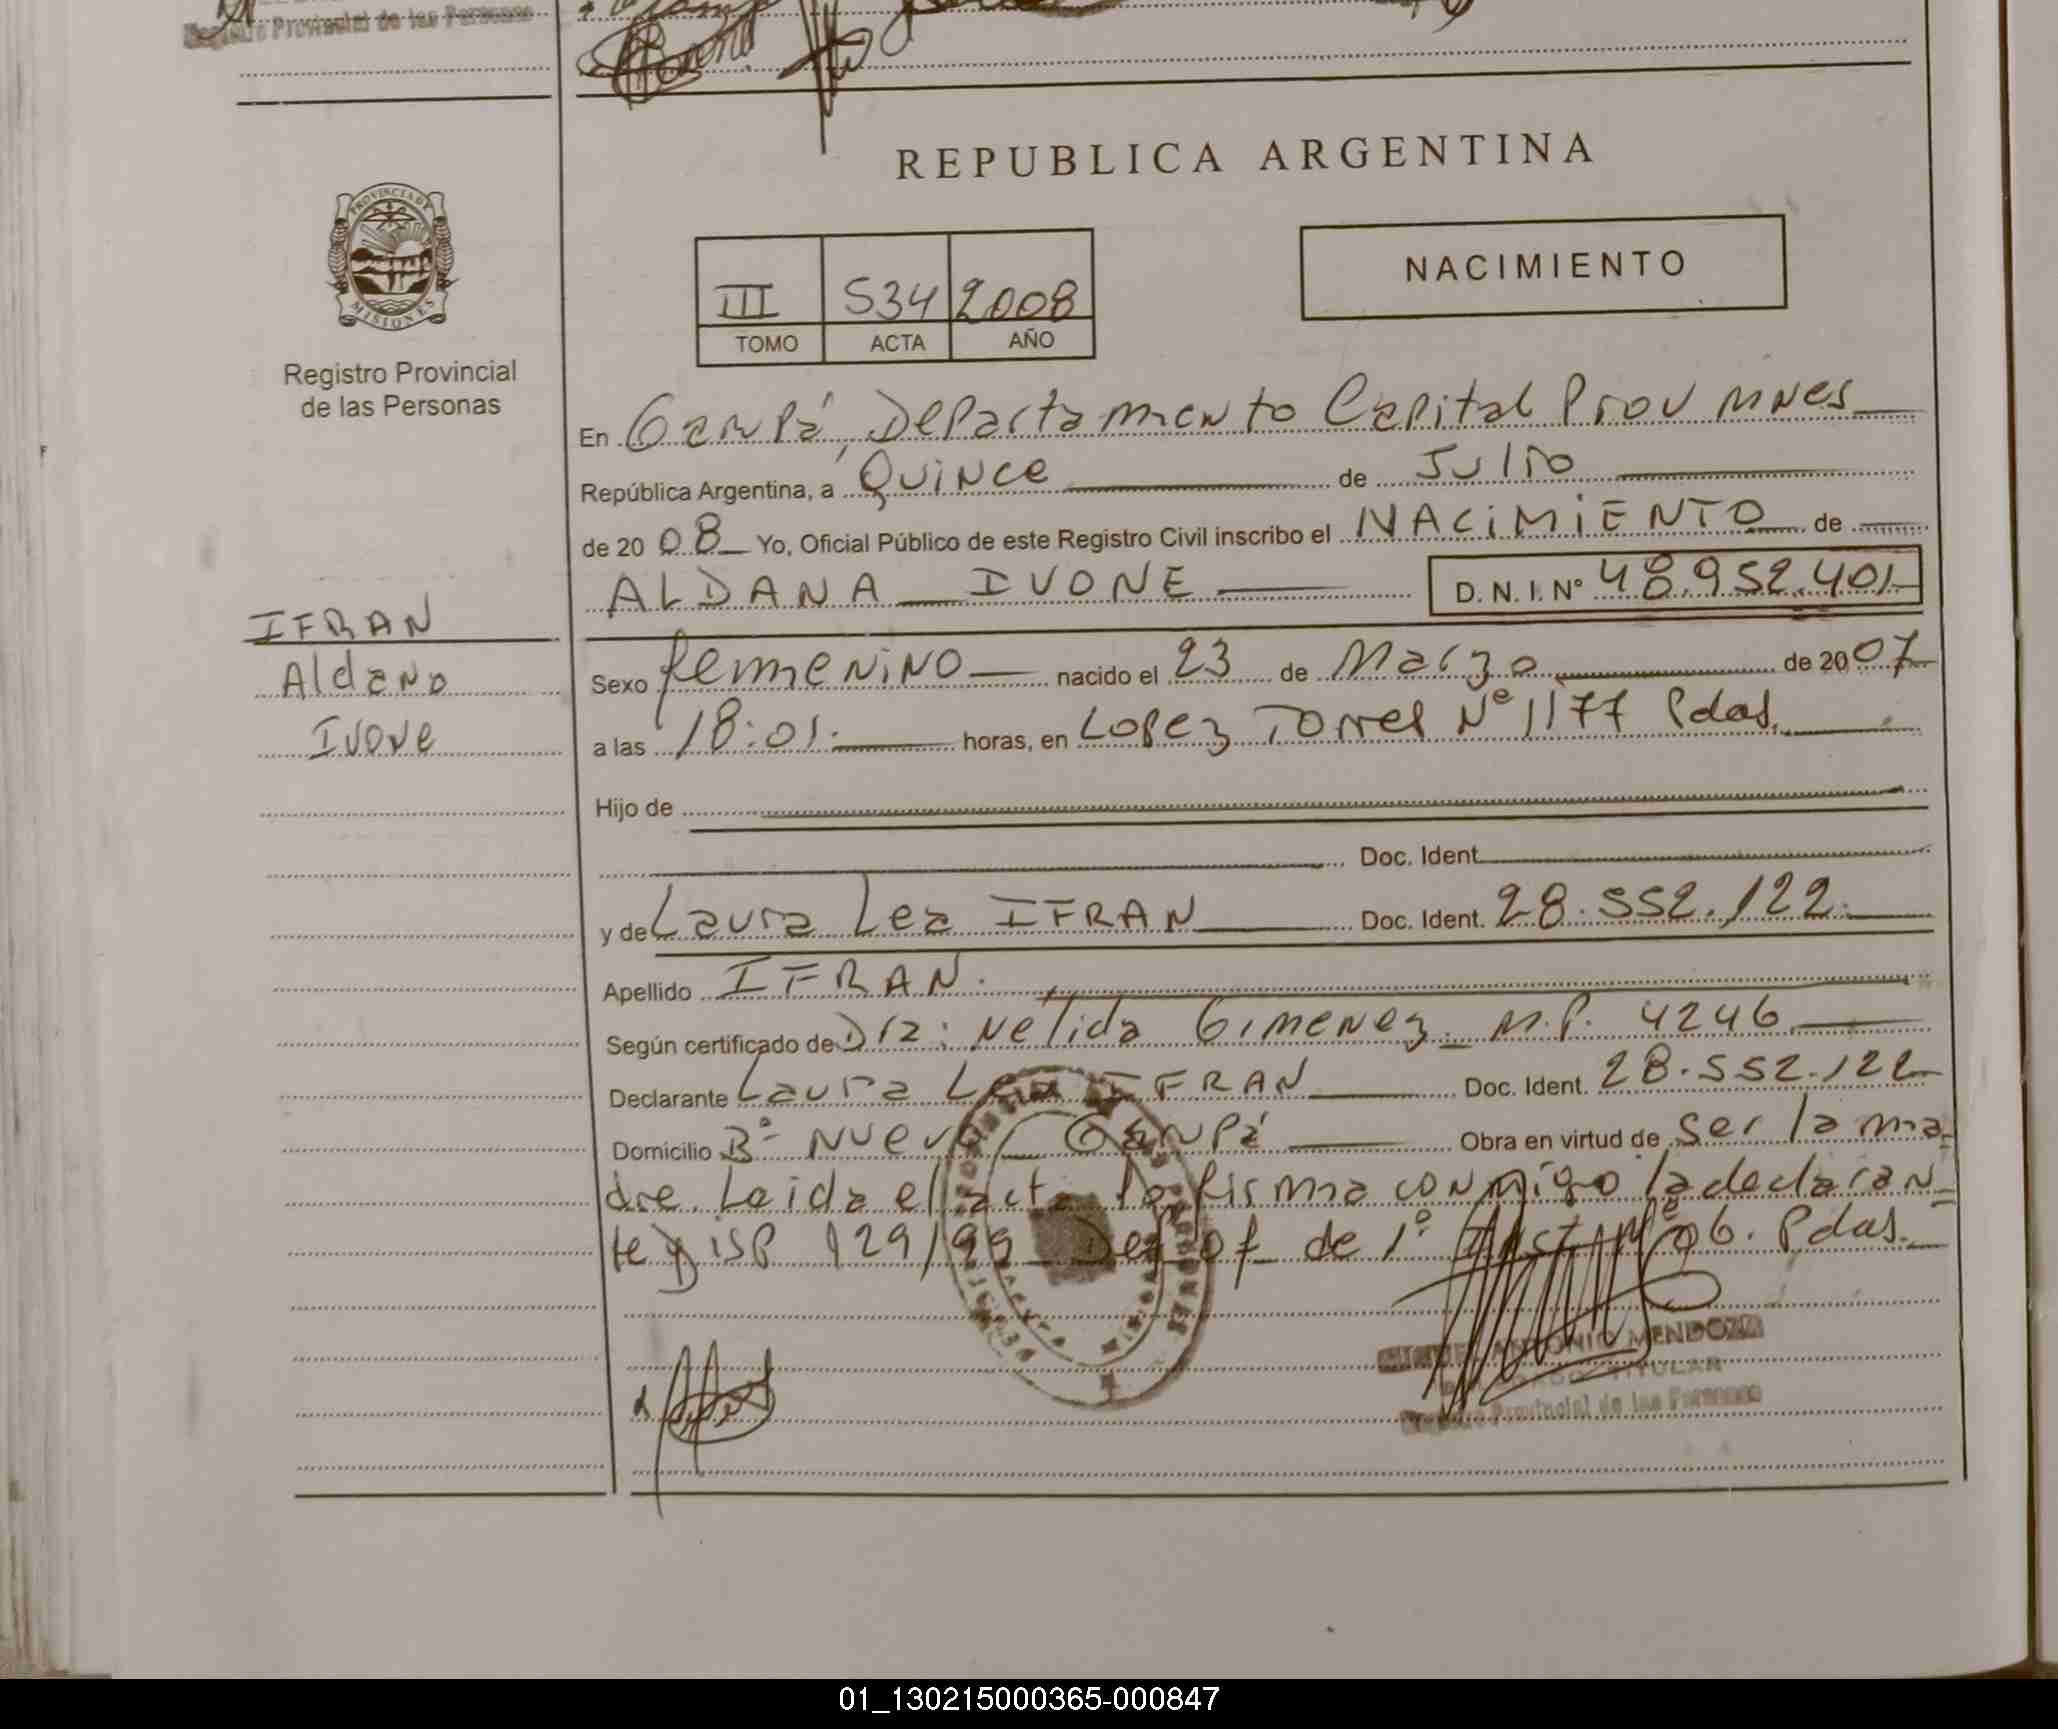 Registro Provincial de las Personas
REPUBLICA ARGENTINA
PROVINCIA DE
MISIONES
Registro Provincial
de las Personas
III 534 2008
TOMO ACTA AÑO
NACIMIENTO
En Garupá, Departamento Capital Prov Mnes
República Argentina, a Quince de Julio
de 2008 Yo, Oficial Público de este Registro Civil inscribo el NACIMIENTO de
ALDANA IVONE D.N.I.Nº 48.952.401
IFRAN
Aldana
Ivone
Sexo femenino nacido el 23 de Marzo de 2007
a las 18:01. horas, en Lopez Torres Nº 1177 Pdas.
Hijo de
Doc. Ident.
y de Laura Lea IFRAN Doc. Ident. 28.552.122.
Apellido IFRAN.
Según certificado de Dra: Nelida Gimenez M.P. 4246
Declarante Laura Lea IFRAN Doc. Ident. 28.552.122
Domicilio Bº Nuevo Garupá Obra en virtud de ser la ma=
dre. Leida el acta la firma conmigo la declaran=
te Disp 129/99 Def of de 1º Inst Nº 06. Pdas.
ANTONIO MENDOZA
TITULAR
Registro Provincial de las Personas
01_130215000365-000847